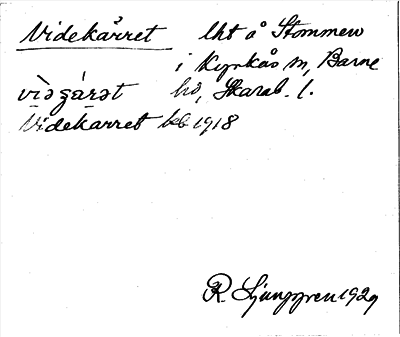 Videkärret lht å Stommen
i Kyrkås sn, Barne
vìdɜárət hd, Skarab. l.
Videkarret kb 1918
R. Ljunggren 1929